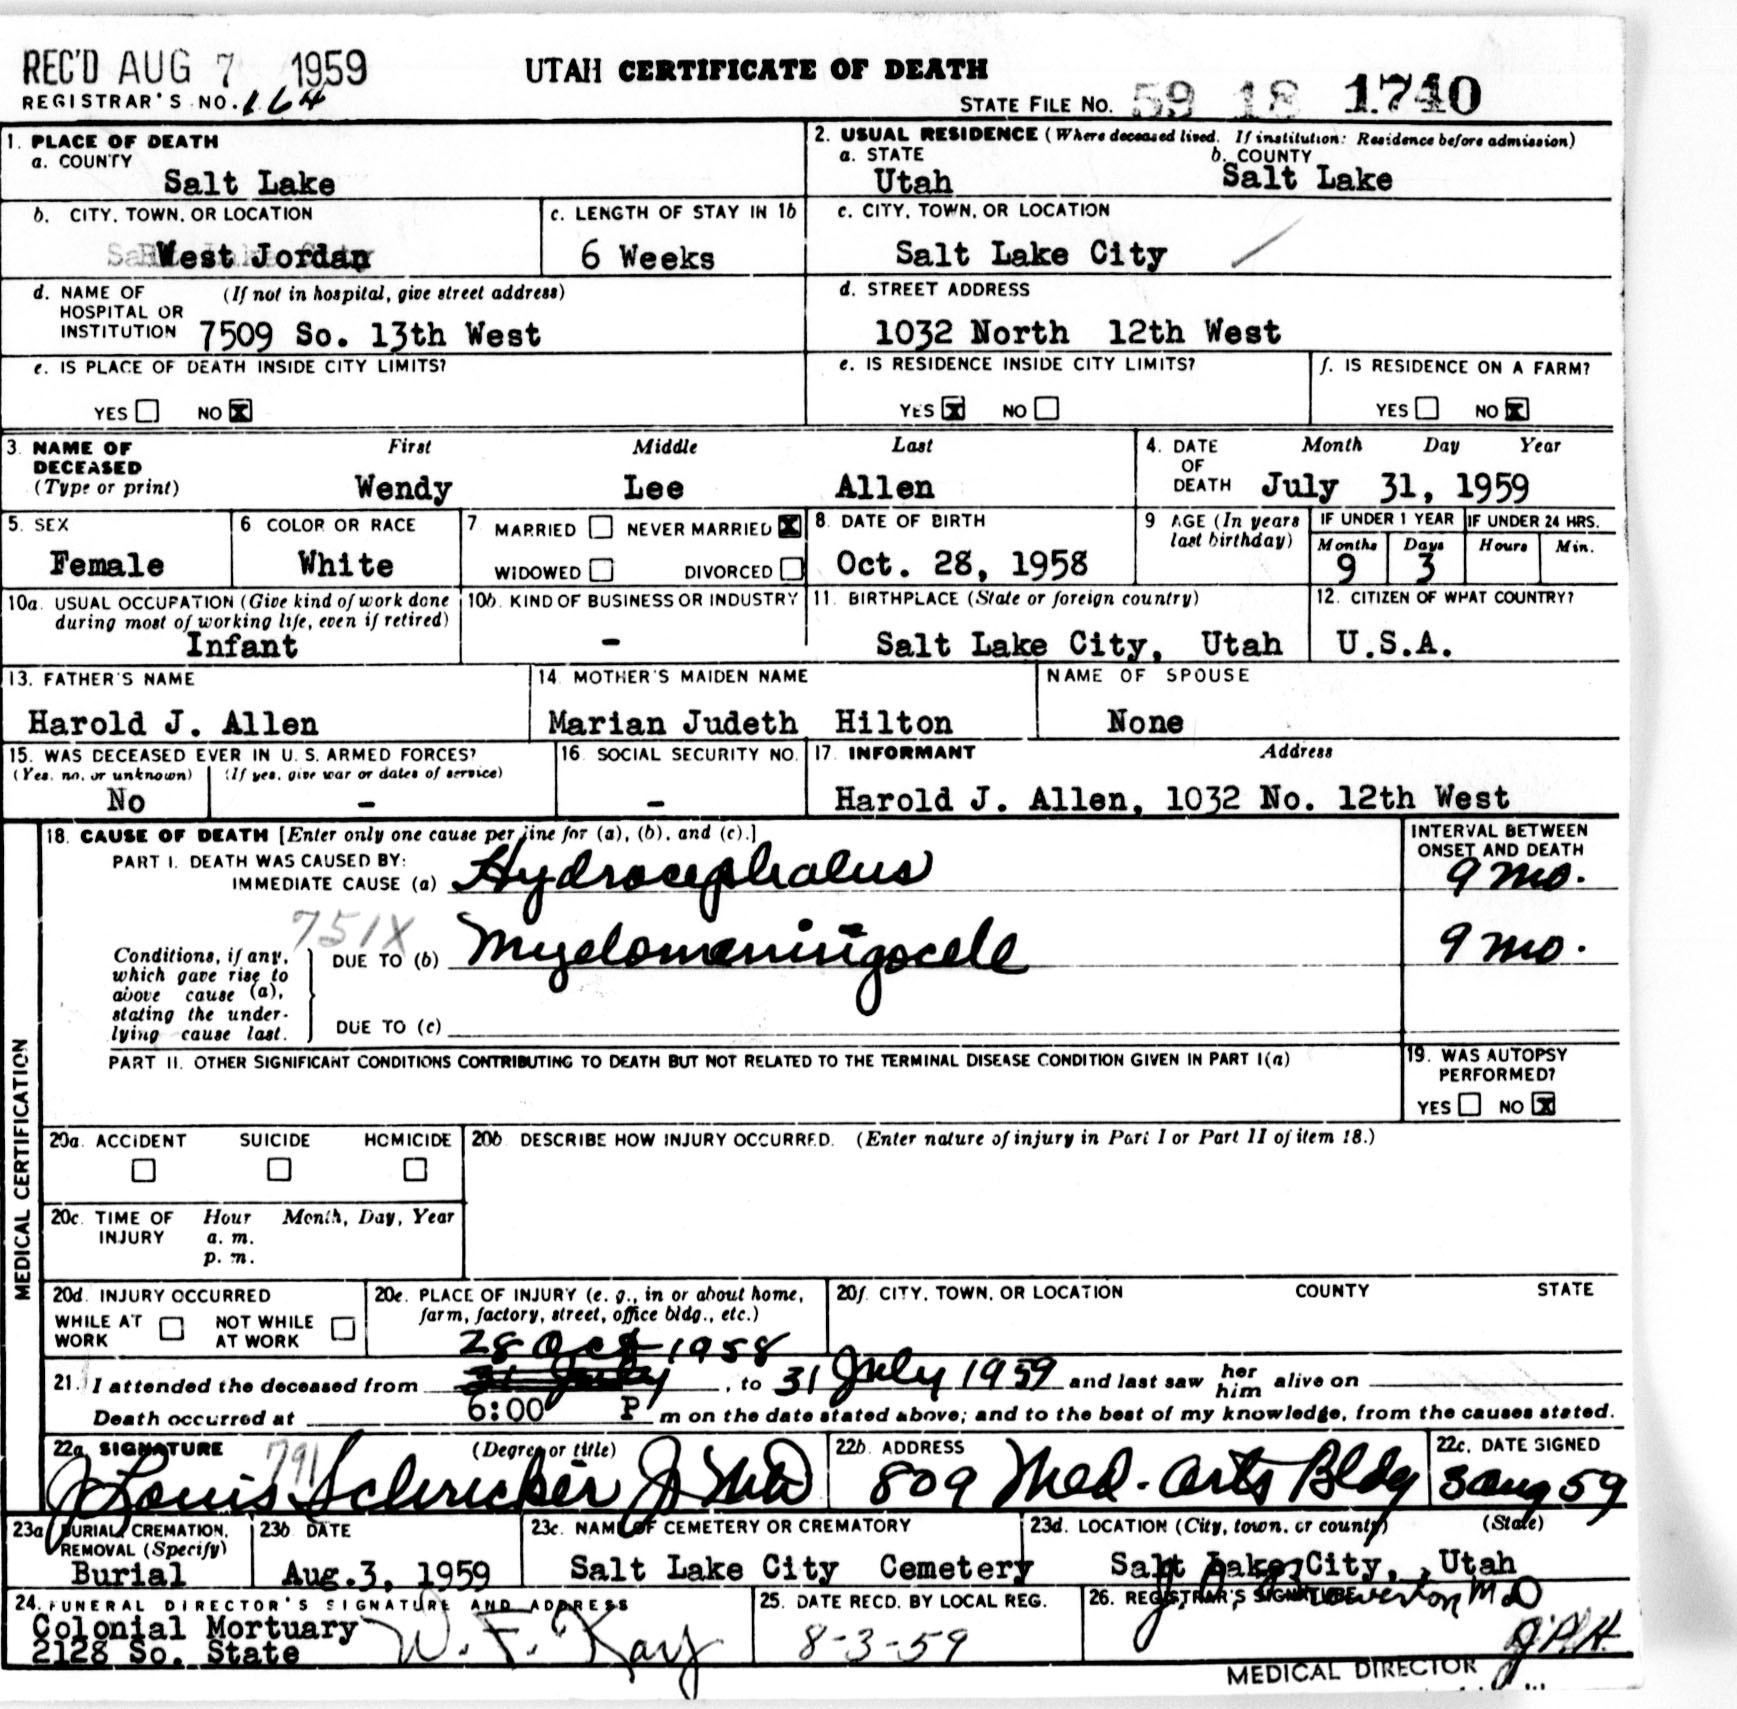 REC'D AUG 7 1959
UTAH CERTIFICATE OF DEATH
REGISTRAR'S NO. 164
STATE FILE NO. 59 18 1740
1. PLACE OF DEATH
a. COUNTY
Salt Lake
2. USUAL RESIDENCE (Where deceased lived. If institution: Residence before admission)
a. STATE b. COUNTY
Utah Salt Lake
b. CITY, TOWN, OR LOCATION
West Jordan
c. LENGTH OF STAY IN 1b
6 Weeks
c. CITY, TOWN, OR LOCATION
Salt Lake City
d. NAME OF (If not in hospital, give street address)
HOSPITAL OR
INSTITUTION 7509 So. 13th West
d. STREET ADDRESS
1032 North 12th West
e. IS PLACE OF DEATH INSIDE CITY LIMITS?
YES NO X
e. IS RESIDENCE INSIDE CITY LIMITS?
YES X NO
f. IS RESIDENCE ON A FARM?
YES NO X
3. NAME OF First Middle Last
DECEASED
(Type or print) Wendy Lee Allen
4. DATE Month Day Year
OF
DEATH July 31, 1959
5. SEX
Female
6 COLOR OR RACE
White
7 MARRIED NEVER MARRIED X
WIDOWED DIVORCED
8. DATE OF BIRTH
Oct. 28, 1958
9 AGE (In years
last birthday)
IF UNDER 1 YEAR
Months Days
9 3
IF UNDER 24 HRS.
Hours Min.
10a. USUAL OCCUPATION (Give kind of work done
during most of working life, even if retired)
Infant
10b. KIND OF BUSINESS OR INDUSTRY
-
11. BIRTHPLACE (State or foreign country)
Salt Lake City, Utah
12. CITIZEN OF WHAT COUNTRY?
U.S.A.
13. FATHER'S NAME
Harold J. Allen
14. MOTHER'S MAIDEN NAME
Marian Judeth Hilton
NAME OF SPOUSE
None
15. WAS DECEASED EVER IN U. S. ARMED FORCES?
(Yes, no, or unknown) (If yes, give war or dates of service)
No -
16. SOCIAL SECURITY NO.
-
17. INFORMANT Address
Harold J. Allen, 1032 No. 12th West
MEDICAL CERTIFICATION
18. CAUSE OF DEATH [Enter only one cause per line for (a), (b), and (c).]
PART I. DEATH WAS CAUSED BY:
IMMEDIATE CAUSE (a) Hydrocephalus
INTERVAL BETWEEN
ONSET AND DEATH
9 mo.
751X
Conditions, if any,
which gave rise to
above cause (a),
stating the under-
lying cause last.
DUE TO (b) Myelomeningocele
9 mo.
DUE TO (c)
PART II. OTHER SIGNIFICANT CONDITIONS CONTRIBUTING TO DEATH BUT NOT RELATED TO THE TERMINAL DISEASE CONDITION GIVEN IN PART I(a)
19. WAS AUTOPSY
PERFORMED?
YES NO X
20a. ACCIDENT SUICIDE HOMICIDE
20b DESCRIBE HOW INJURY OCCURRED. (Enter nature of injury in Part I or Part II of item 18.)
20c. TIME OF Hour Month, Day, Year
INJURY a. m.
p. m.
20d. INJURY OCCURRED
WHILE AT NOT WHILE
WORK AT WORK
20e. PLACE OF INJURY (e. g., in or about home,
farm, factory, street, office bldg., etc.)
20f. CITY, TOWN, OR LOCATION COUNTY STATE
28 Oct 1958
21. I attended the deceased from 31 July, to 31 July 1959 and last saw her him alive on
Death occurred at 6:00 P m on the date stated above; and to the best of my knowledge, from the causes stated.
22a. SIGNATURE (Degree or title)
791
J Louis Schricker Jr MD
22b. ADDRESS
809 Med. Arts Bldg
22c. DATE SIGNED
3 Aug 59
23a BURIAL, CREMATION,
REMOVAL (Specify)
Burial
23b DATE
Aug. 3, 1959
23c. NAME OF CEMETERY OR CREMATORY
Salt Lake City Cemetery
23d. LOCATION (City, town, or county) (State)
Salt Lake City, , Utah
24. FUNERAL DIRECTOR'S SIGNATURE AND ADDRESS
Colonial Mortuary
2128 So. State
W. F. Kay
25. DATE RECD. BY LOCAL REG.
8-3-59
26. REGISTRAR'S SIGNATURE
MD
MEDICAL DIRECTOR